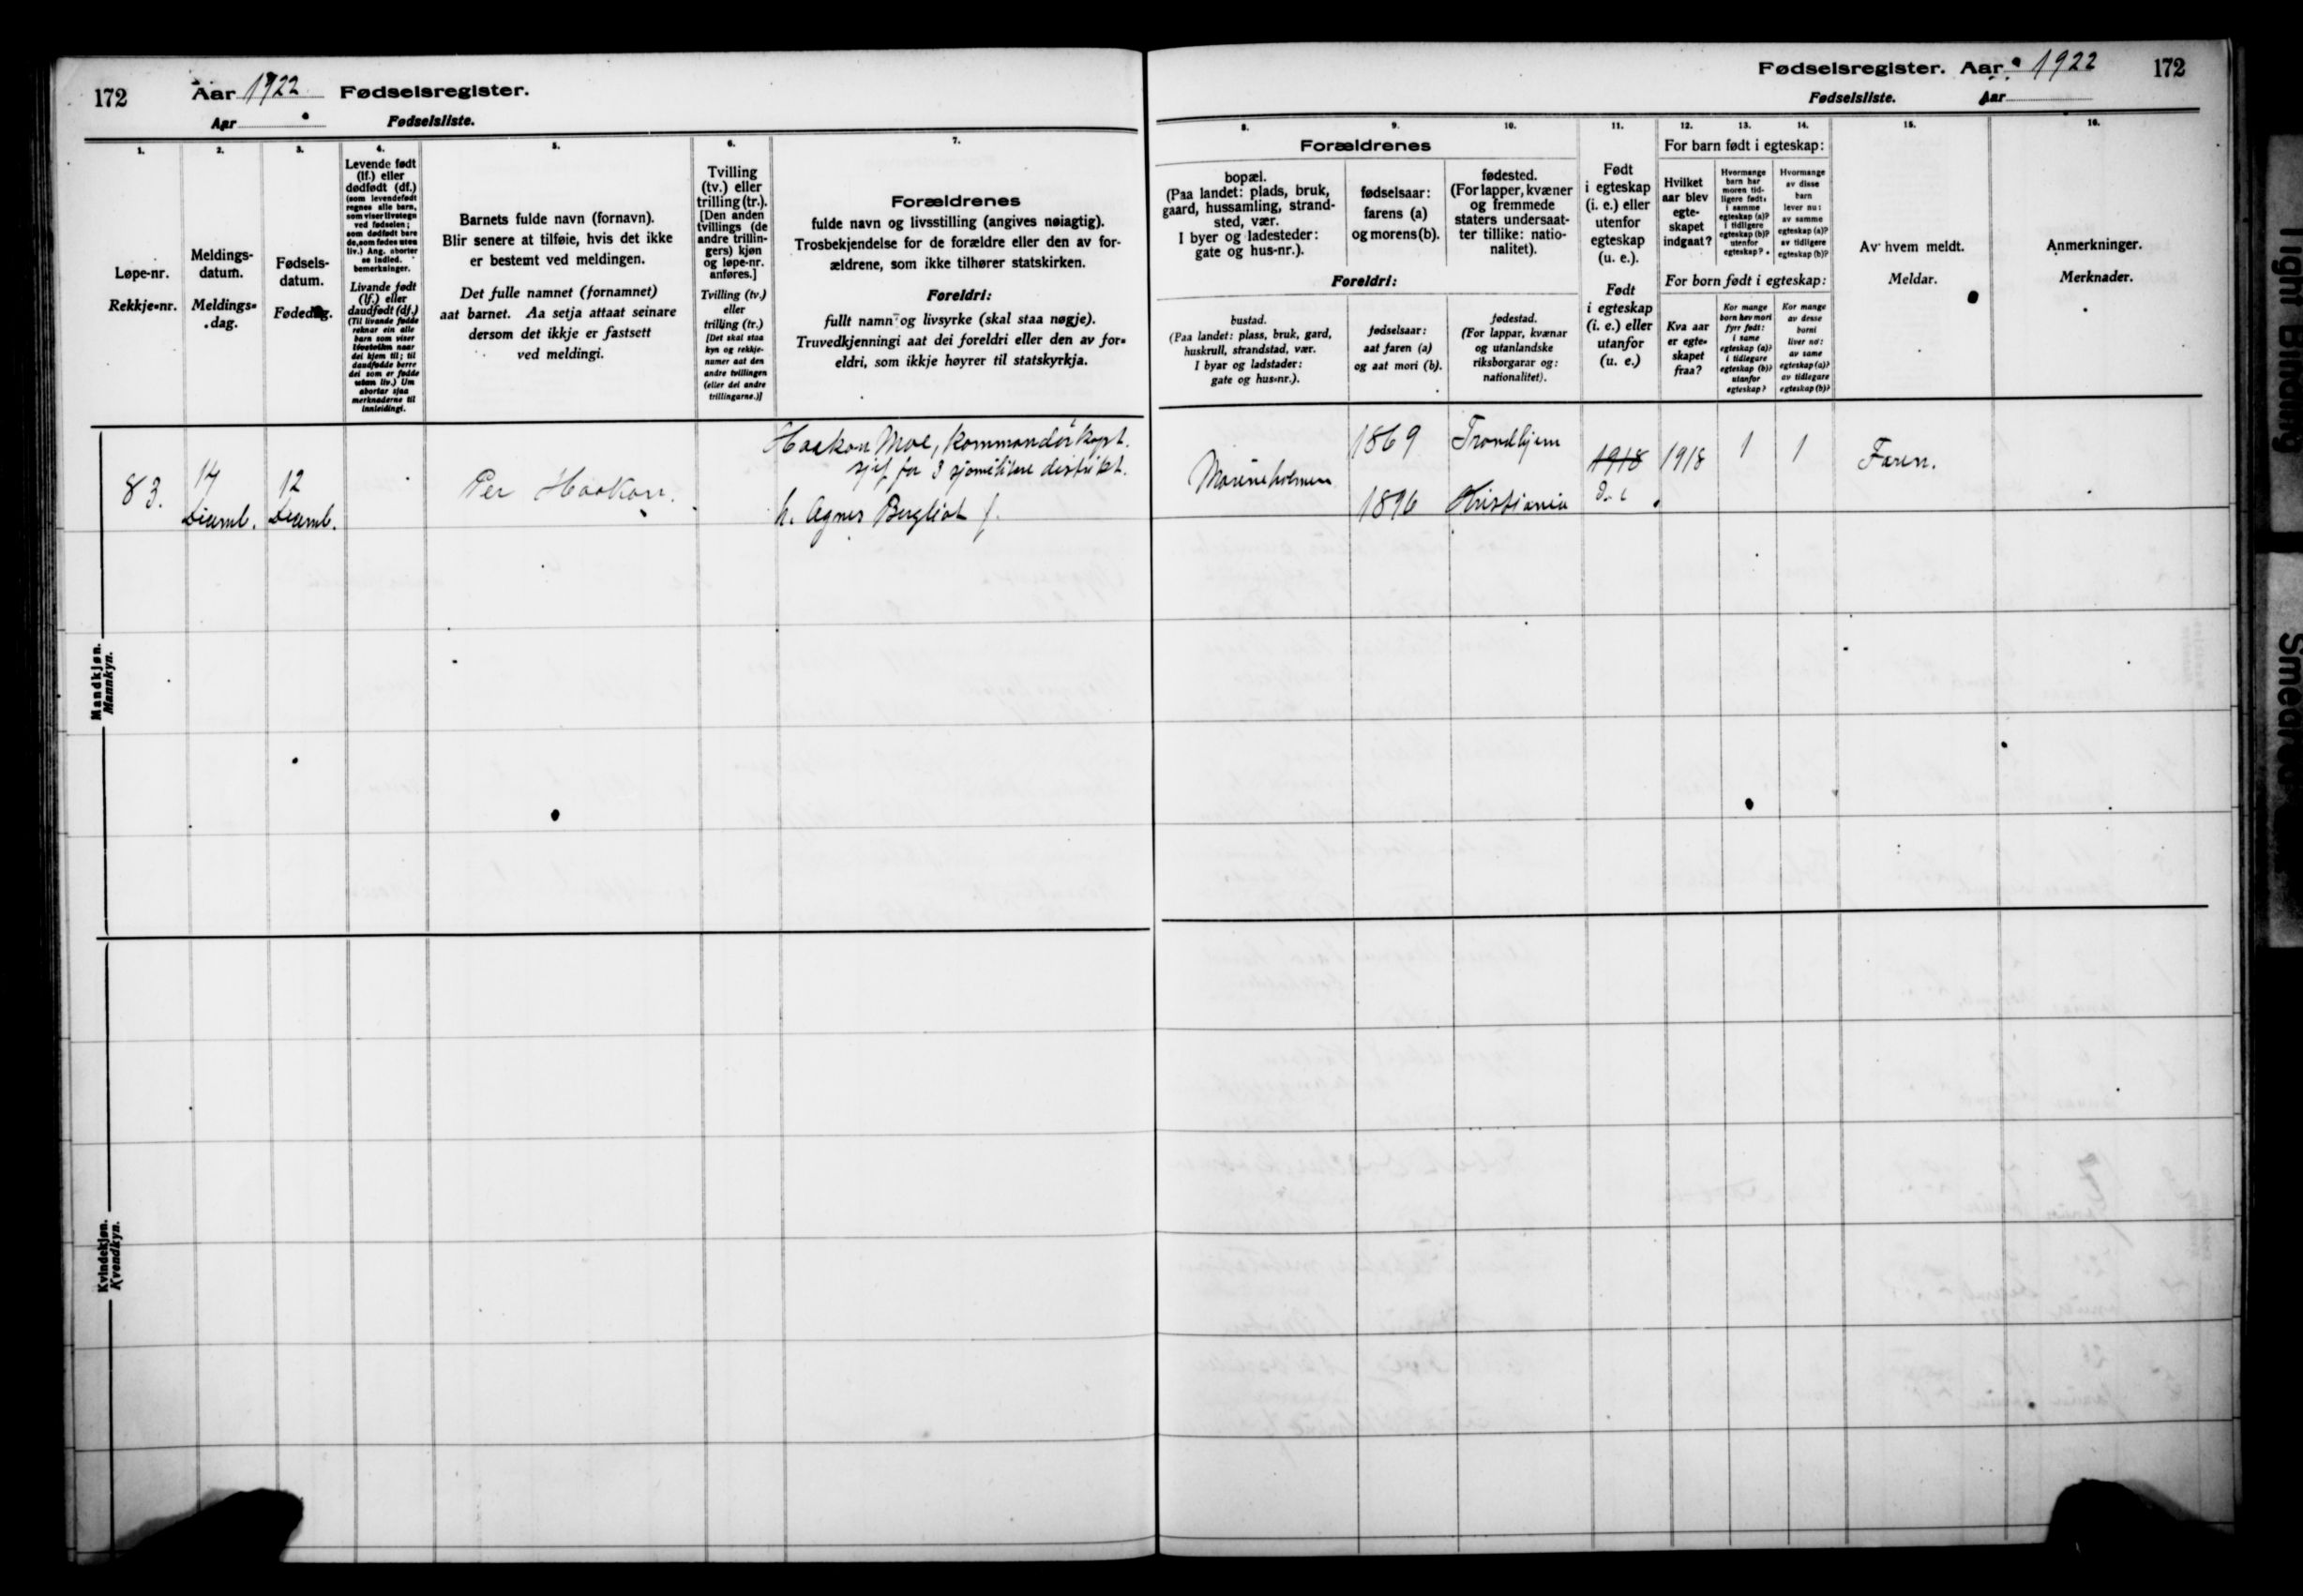 172
Aar 1922 Fødselsregister.
Aar Fødselsliste.
Fødselsregister. Aar 1922
172
Fødselsliste. Aar
1.
Løpe-nr.
Rekkje-nr.
2.
Meldings-
datum.
Meldings-
dag.
3.
Fødsels-
datum.
Fødedag.
4.
Levende født
(lf.) eller
dødfødt (df.)
(som levendefødt
regnes alle barn,
som viser livstegn
ved fødselen;
som dødfødt bare
de, som fødes uten
liv.) Ang. aborter
se indled.
bemerkninger.
Livande født
(lf.) eller
daudfødt (df.)
(Til livande fødde
reknar ein alle
barn som viser
livsteikn naar
dei kjem til; til
daudfødde berre
dei som er fødde
utan liv.) Um
abortar sjaa
merknaderne til
innleidingi.
5.
Barnets fulde navn (fornavn).
Blir senere at tilføie, hvis det ikke
er bestemt ved meldingen.
Det fulle namnet (fornamnet)
aat barnet. Aa setja attaat seinare
dersom det ikkje er fastsett
ved meldingi.
6.
Tvilling
(tv.) eller
trilling (tr.).
[Den anden
tvillings (de
andre trillin-
gers) kjøn
og løpe-nr.
anføres.]
Tvilling (tv.)
eller
trilling (tr.)
[Det skal staa
kyn og rekkje-
numer aat den
andre tvillingen
(eller dei andre
trillingarne.)]
7.
Forældrenes
fulde navn og livsstilling (angives nøiagtig).
Trosbekjendelse for de forældre eller den av for-
ældrene, som ikke tilhører statskirken.
Foreldri:
fullt namn og livsyrke (skal staa nøgje).
Truvedkjenningi aat dei foreldri eller den av for-
eldri, som ikkje høyrer til statskyrkja.
8.
9.
10.
Forældrenes
bopæl.
(Paa landet: plads, bruk,
gaard, hussamling, strand-
sted, vær.
I byer og ladesteder:
gate og hus-nr.).
fødselsaar:
farens (a)
og morens (b).
fødested.
(For lapper, kvæner
og fremmede
staters undersaat-
ter tillike: natio-
nalitet).
Foreldri:
bustad.
(Paa landet: plass, bruk, gard,
huskrull, strandstad, vær.
I byar og ladstader:
gate og hus-nr.).
fødselsaar:
aat faren (a)
og aat mori (b).
fødestad.
(For lappar, kvænar
og utanlandske
riksborgarar og:
nationalitet).
11.
Født
i egteskap
(i. e.) eller
utenfor
egteskap
(u. e.).
Født
i egteskap
(i. e.) eller
utanfor
(u. e.)
12.
13.
14.
For barn født i egteskap:
Hvilket
aar blev
egte-
skapet
indgaat?
Hvormange
barn har
moren tid-
ligere født:
i samme
egteskap (a)?
i tidligere
egteskap (b)?
utenfor
egteskap?
Hvormange
av disse
barn
lever nu:
av samme
egteskap (a)?
av tidligere
egteskap (b)?
For born født i egteskap:
Kva aar
er egte-
skapet
fraa?
Kor mange
born hev mori
fyrr født:
i same
egteskap (a)?
i tidlegare
egteskap (b)?
utanfor
egteskap?
Kor mange
av desse
borni
liver no:
av same
egteskap (a)?
av tidlegare
egteskap (b)?
15.
Av hvem meldt.
Meldar.
16.
Anmerkninger.
Merknader.
Mandkjøn.
Mannkyn.
83.
14
Decemb.
12
Decemb.
Per Haakon.
Haakon Moe, Kommandørkapt.
sjef for 3 sjømilitære distrikt.
h. Agnes Bergliot f.
Marineholmen
1869
1896
Trondhjem
Kristiania
1918
1918
1
1
Faren.
Kvindekjøn.
Kvendkyn.
Tight Binding